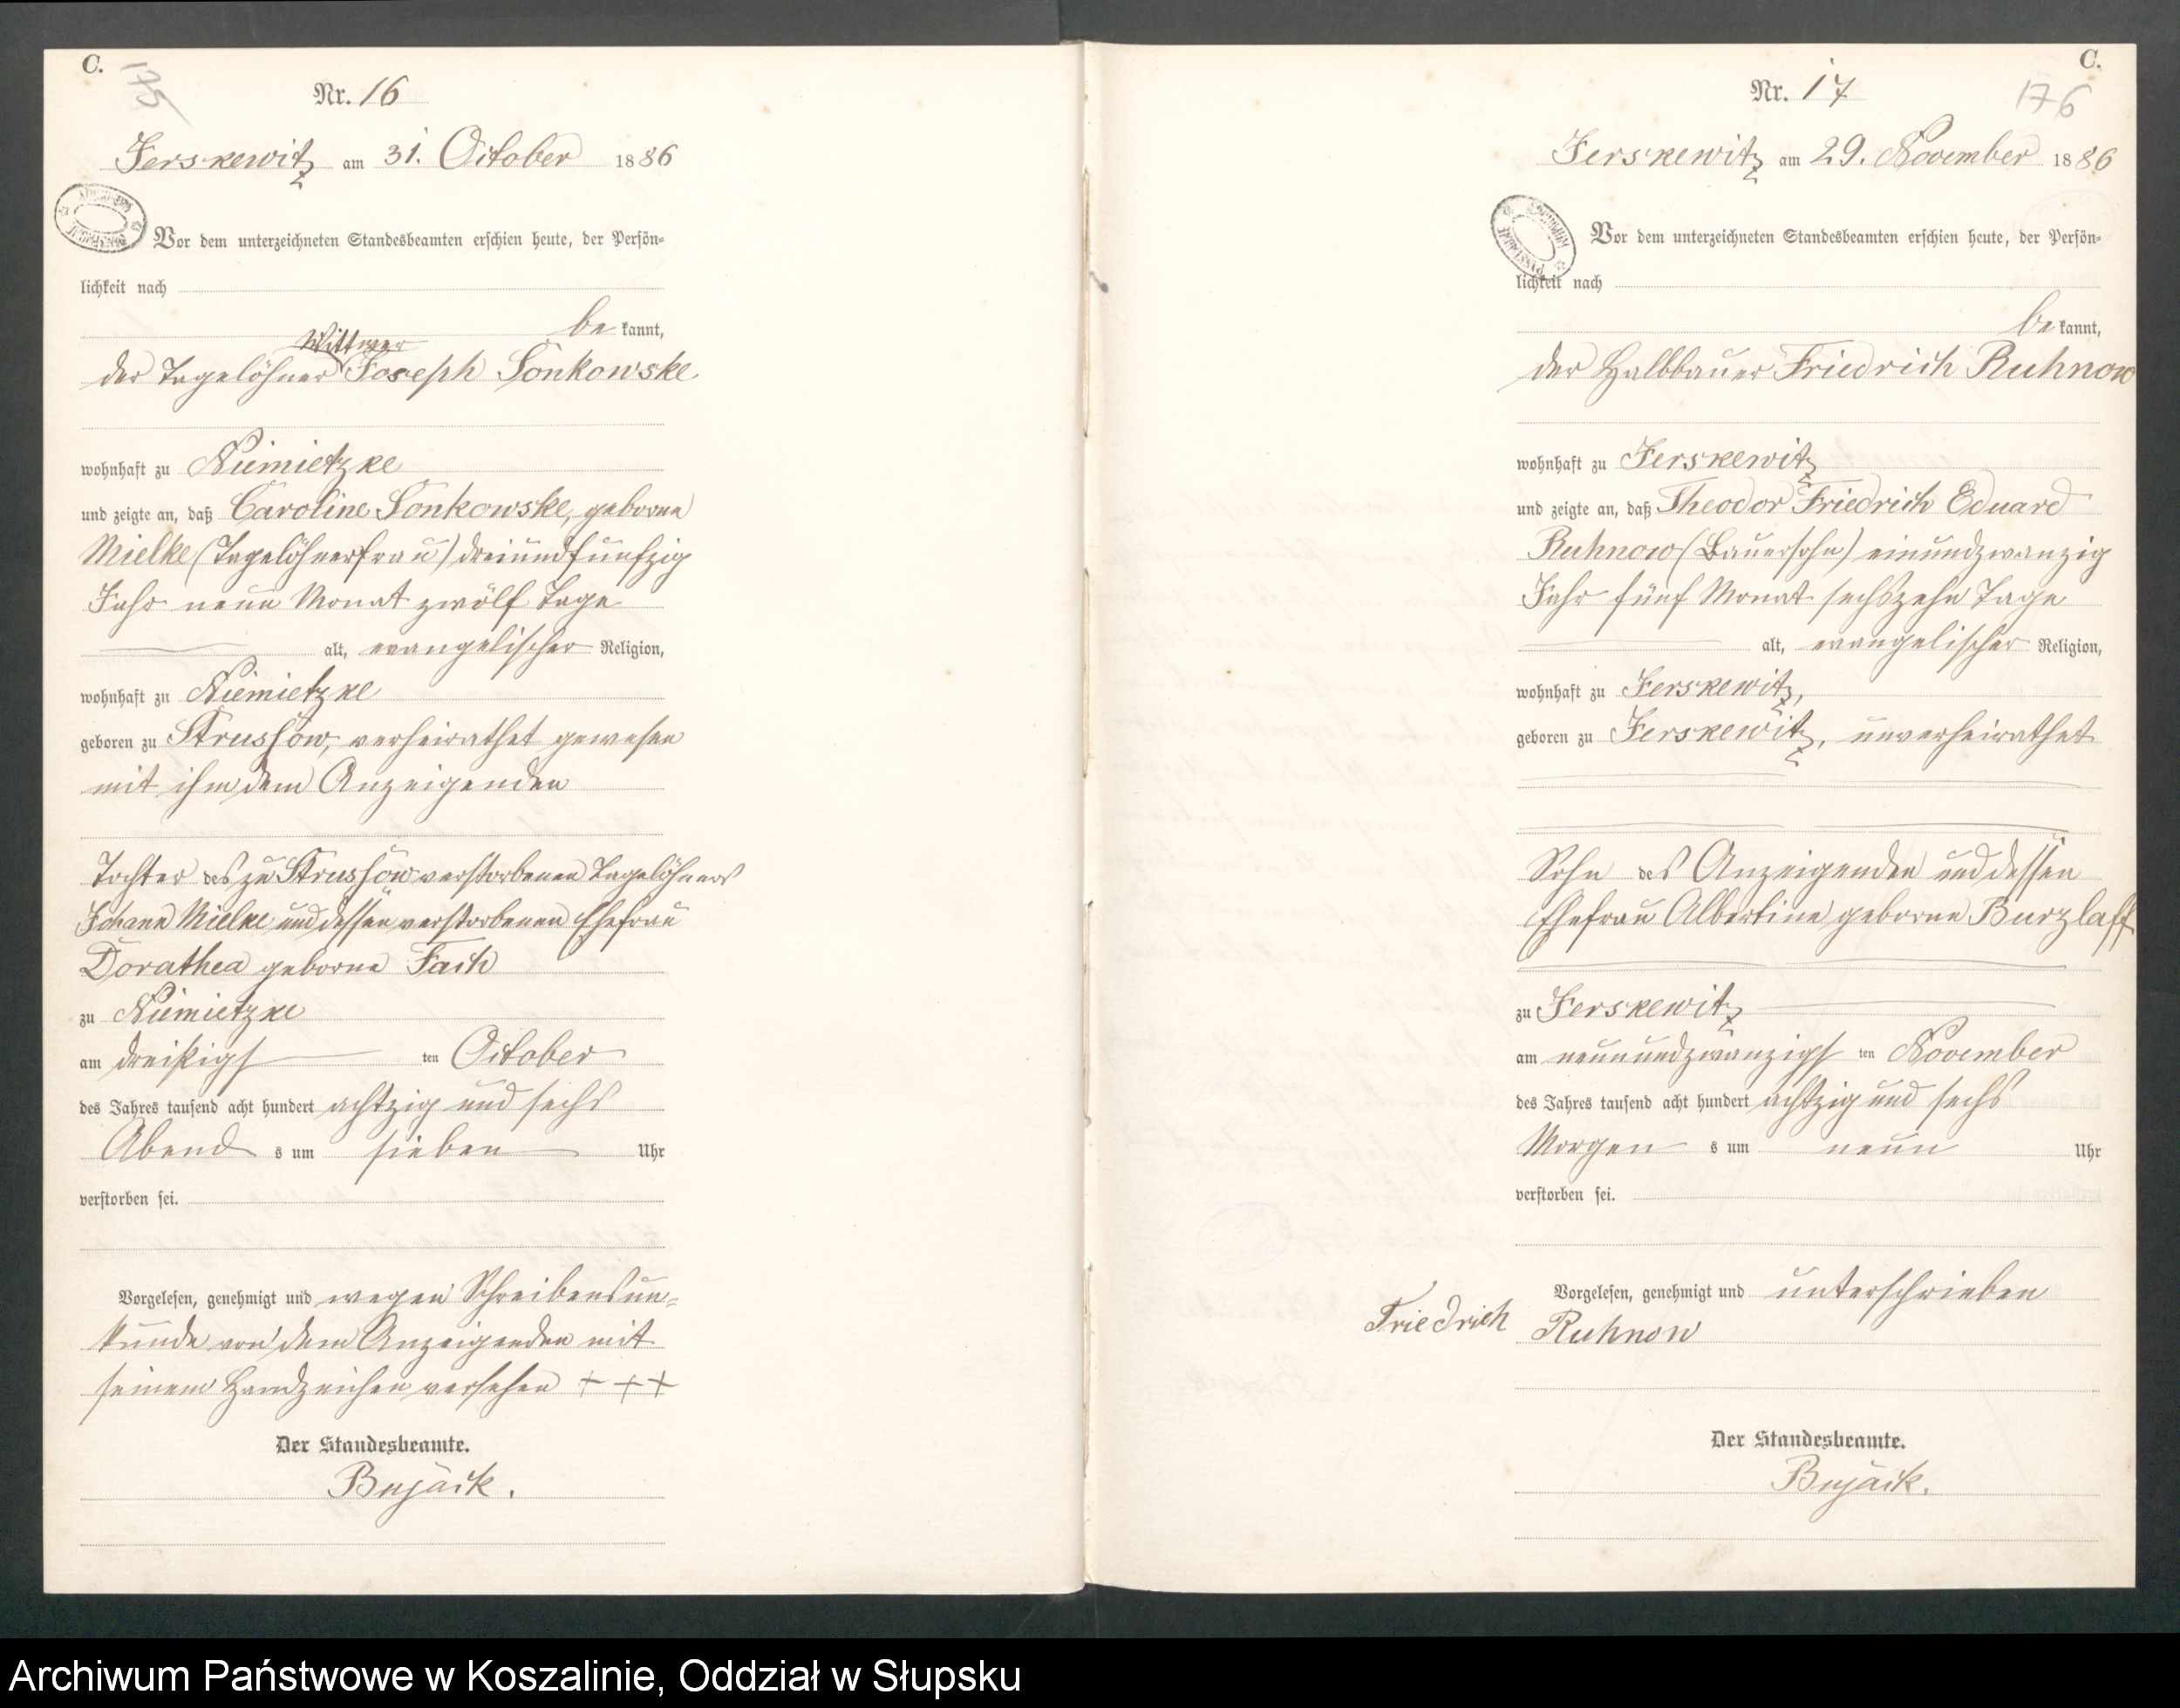 C.
175
Nr. 16
Jerskewitz am 31. October 1886
Vor dem unterzeichneten Standesbeamten erschien heute, der Persön-
lichkeit nach
be kannt,
Wittwer
der Tagelöhner Joseph Sonkowske
wohnhaft zu Niemietzke
und zeigte an, daß Caroline Sonkowske, geborne
Mielke (Tagelöhnerfrau) dreiundfünfzig
Jahr neun Monat zwölf Tage
alt, evangelischer Religion,
wohnhaft zu Niemietzke
geboren zu Strussow, verheirathet gewesen
mit ihm dem Anzeigenden
Tochter des zu Strussow verstorbenen Tagelöhners
Johann Mielke und dessen verstorbenen Ehefrau
Dorathea geborne Fach
zu Niemietzke
am dreißigst ten October
des Jahres tausend acht hundert achtzig und sechs
Abend s um sieben Uhr
verstorben sei.
Vorgelesen, genehmigt und wegen Schreibensun-
kunde von dem Anzeigenden mit
seinem Handzeichen versehen + + +
Der Standesbeamte.
Bujack.
C.
176
Nr. 17
Jerskewitz am 29. November 1886
Vor dem unterzeichneten Standesbeamten erschien heute, der Persön-
lichkeit nach
be kannt,
der Halbbauer Friedrich Ruhnow
wohnhaft zu Jerskewitz
und zeigte an, daß Theodor Friedrich Eduard
Ruhnow (Bauersohn) einundzwanzig
Jahr fünf Monat sechszehn Tage
alt, evangelischer Religion,
wohnhaft zu Jerskewitz,
geboren zu Jerskewitz, unverheirathet
Sohn des Anzeigenden und dessen
Ehefrau Albertine geborne Burzlaff
zu Jerskewitz
am neunundzwanzigst ten November
des Jahres tausend acht hundert achtzig und sechs
Morgen s um neun Uhr
verstorben sei.
Vorgelesen, genehmigt und unterschrieben
Friedrich Ruhnow
Der Standesbeamte.
Bujack.
Archiwum Państwowe w Koszalinie, Oddział w Słupsku